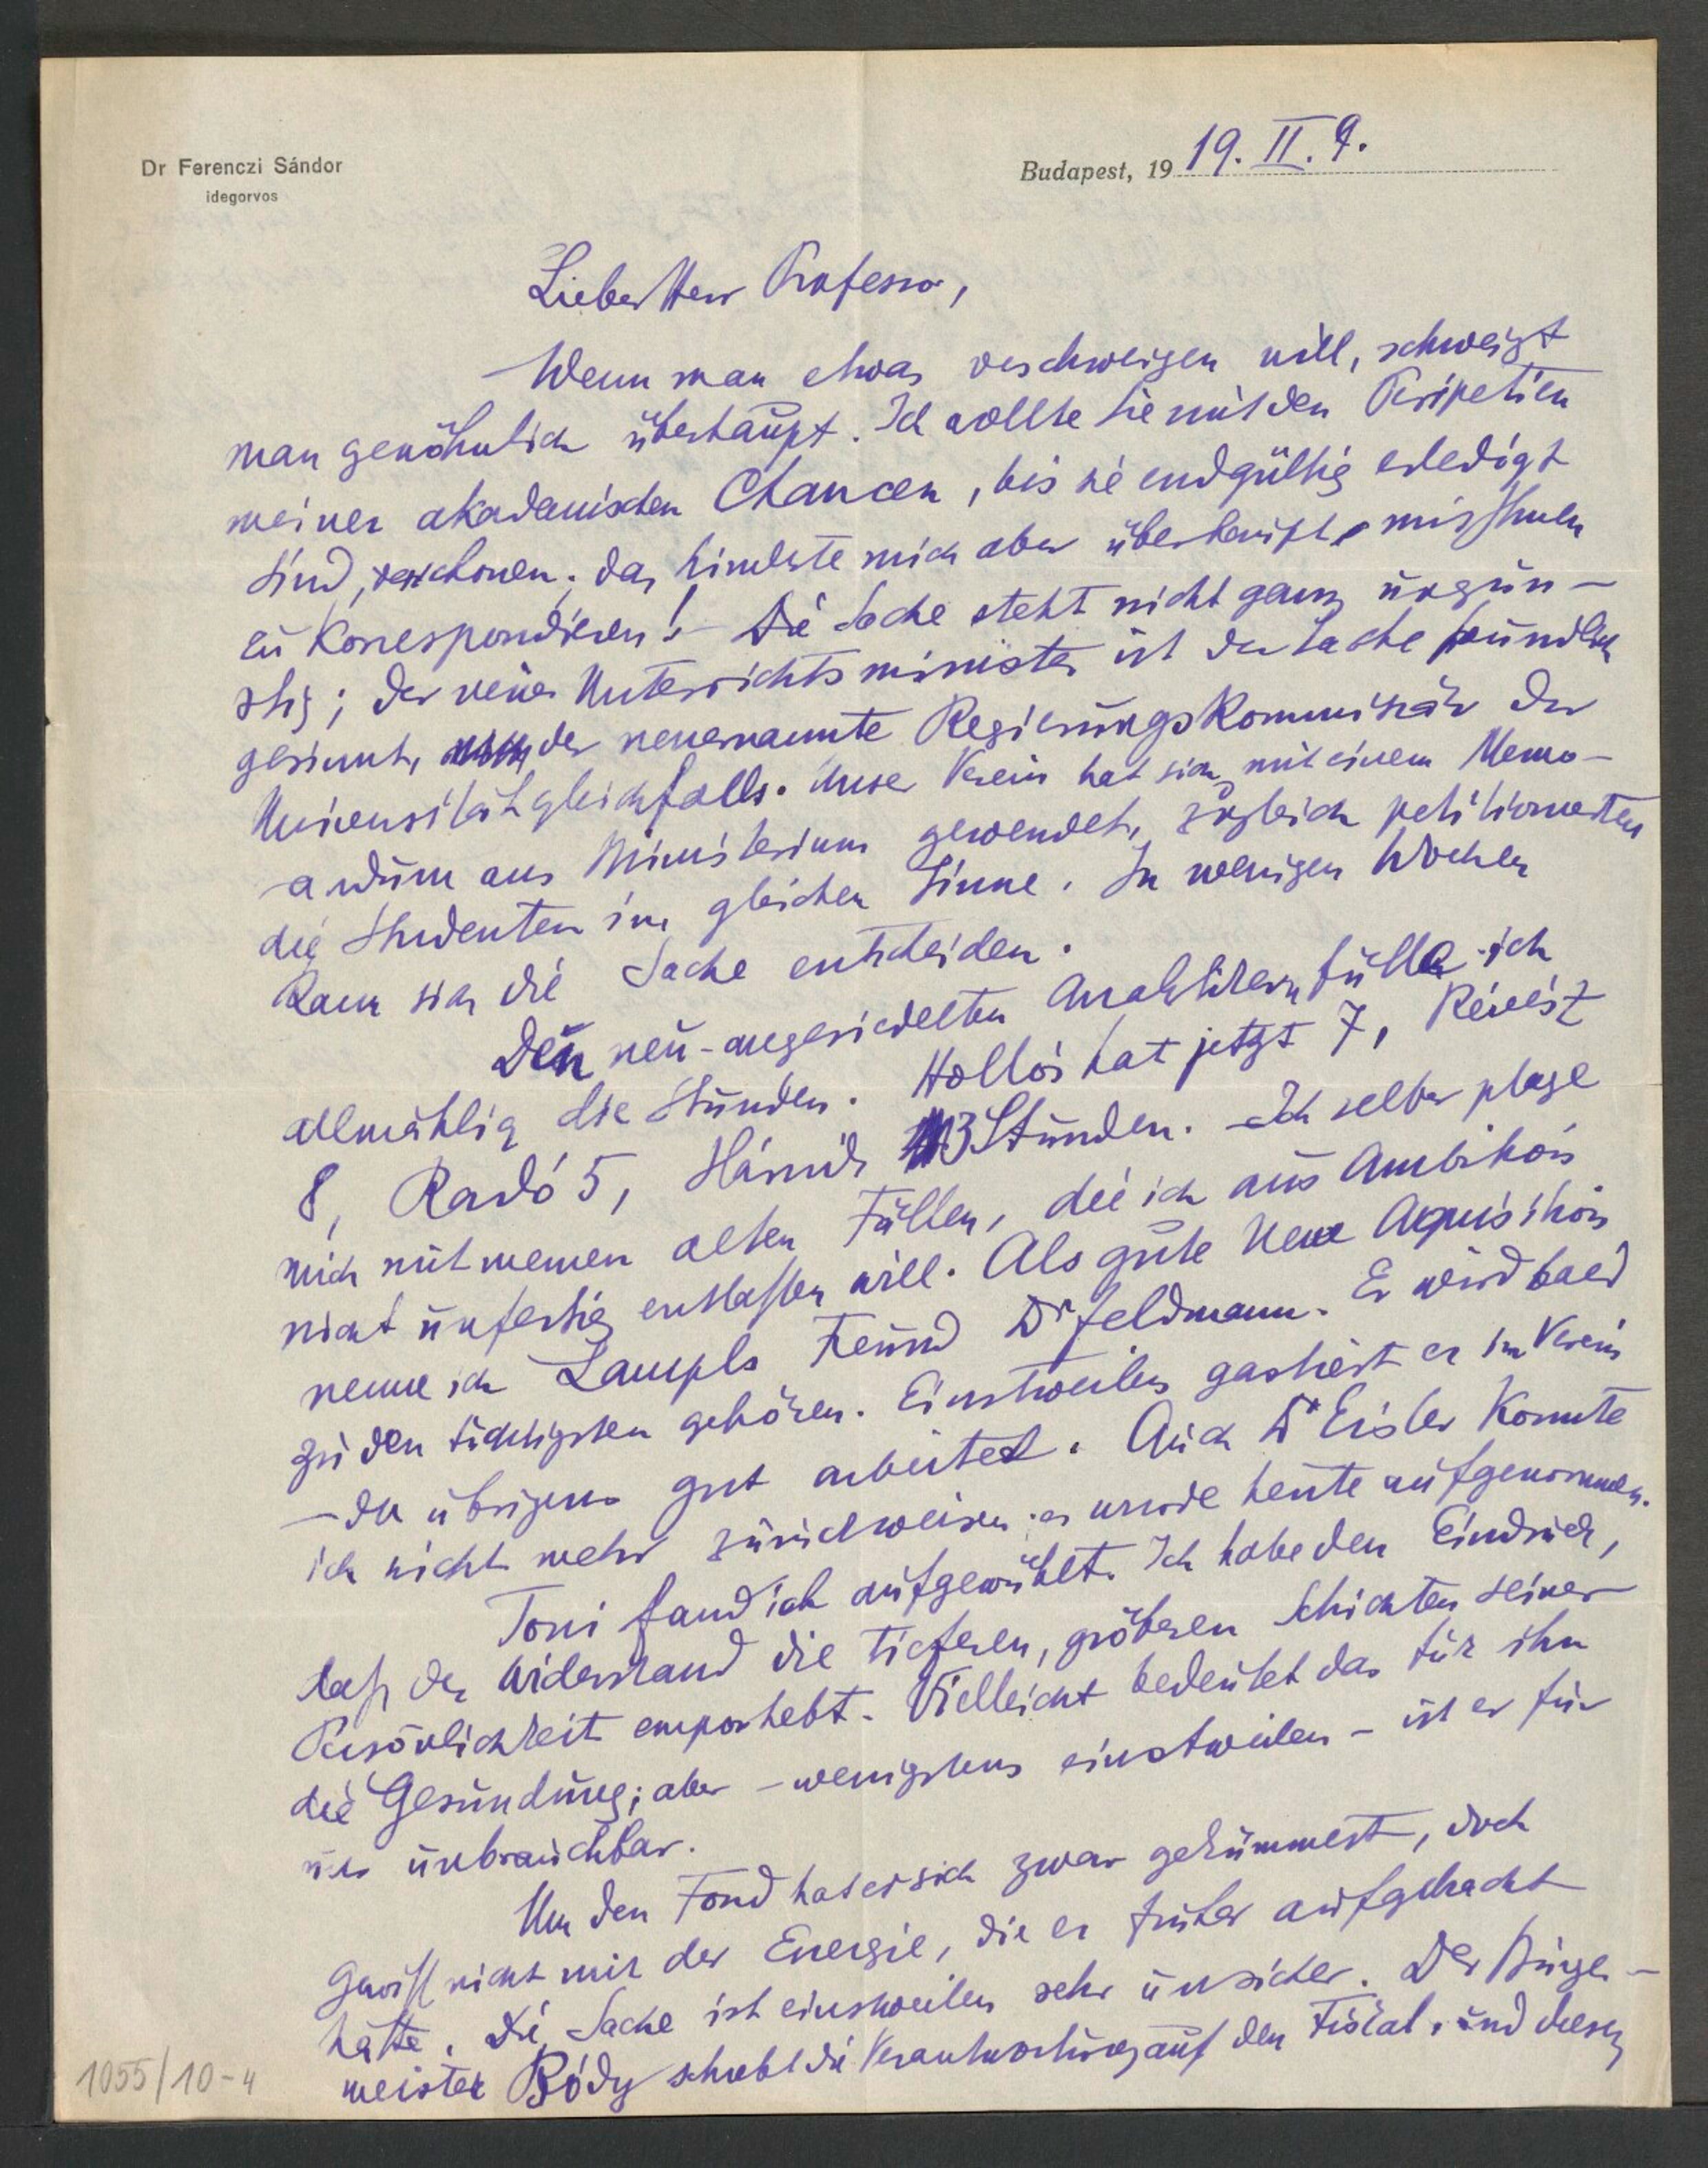 Dr Ferenczi Sándor
idegorvos
Budapest, 19 19. II. 9.
Lieber Herr Professor,
Wenn man etwas verschweigen will, schweigt
man gewöhnlich überhaupt. Ich wollte Sie mit den Peripetien
meiner akademischen Chancen, bis sie endgültig erledigt
sind, verschonen; das hinderte mich aber überhaupt mit Ihnen
zu korrespondieren! – Die Sache steht nicht ganz ungün-
stig; der neue Unterrichtsminister ist der Sache freundlich
gesinnt, der neuernannte Regierungskommissär der
Universität gleichfalls. Unser Verein hat sich mit einem Memo-
randum ans Ministerium gewendet, zugleich petitionierten
die Studenten im gleichen Sinne. In wenigen Wochen
kann sich die Sache entscheiden.
Den neu-angesiedelten Analytikern fülle ich
allmählig die Stunden. Hollós hat jetzt 7, Révész
8, Radó 5, Hárnik 3 Stunden. – Ich selber plage
mich mit meinen alten Fällen, die ich aus Ambition
nicht unfertig entlassen will. Als gute neue Aquisition
nenne ich Lampls Freund Dr Feldmann. Er wird bald
zu den tüchtigsten gehören. Einstweilen gastiert er im Verein
– der übrigens gut arbeitet. Auch Dr Eisler konnte
ich nicht mehr zurückweisen; er wurde heute aufgenommen.
Toni fand ich aufgewühlt. Ich habe den Eindruck,
daß der Widerstand die tieferen, gröberen Schichten seiner
Persönlichkeit emporhebt. Vielleicht bedeutet das für ihn
die Gesundung; aber – wenigstens einstweilen – ist er für
uns unbrauchbar.
Um den Fond hat er sich zwar gekümmert, doch
gewiß nicht mit der Energie, die er früher aufgebracht
hätte. Die Sache ist einstweilen sehr unsicher. Der Bürger-
meister Bódy schiebt die Verantwortung auf den Fiscal, und dieser
1055/10-4